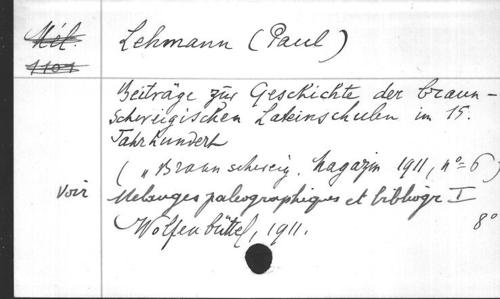 Mél. Lehmann (Paul)
1101
Beiträge zur Geschichte der braun-
schweigischen Lateinschulen im 15.
Jahrhundert
( „Braunschweig. Magazin 1911, n°= 6)
voir Mélanges paleographiques et bibliogr I
Wolfenbüttel, 1911. 8°